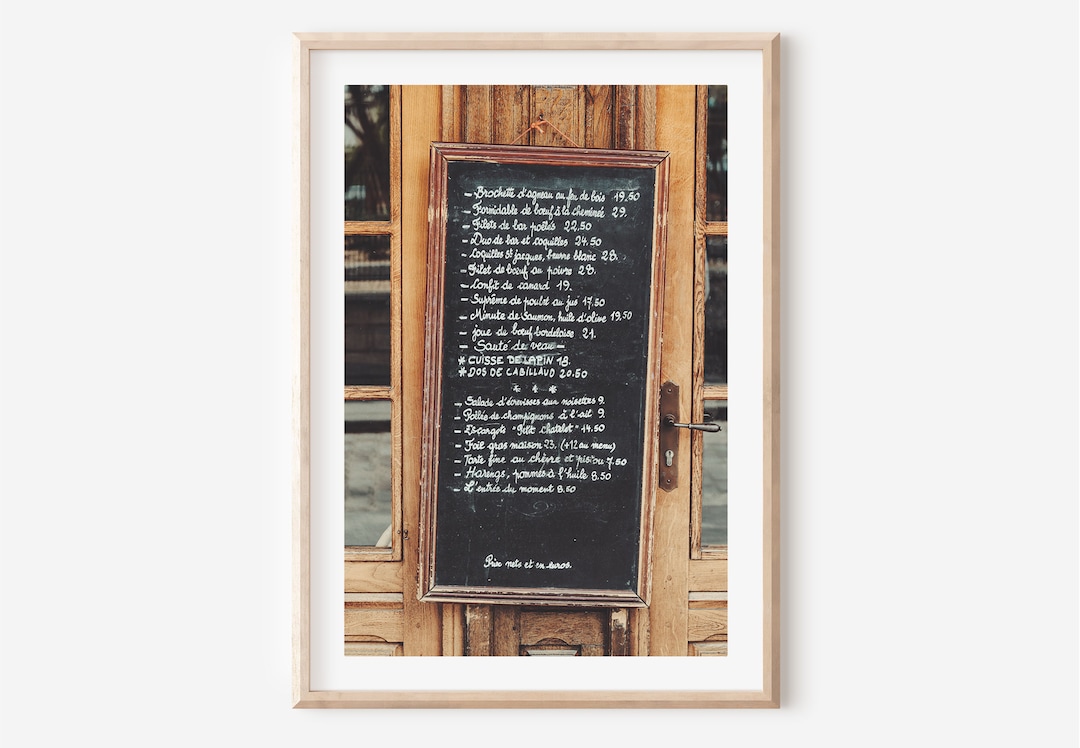 - Brochette d'agneau au feu de bois 19.50
- Formidable de bœuf à la cheminée 29.
- Filets de bar poêlés 22.50
- Duo de bar et coquilles 24.50
- Coquilles St jacques, beurre blanc 28.
- Filet de bœuf au poivre 28.
- Confit de canard 19.
- Suprême de poulet au jus 17.50
- Minute de Saumon, huile d'olive 19.50
- joue de bœuf bordelaise 21.
- Sauté de veau -
* CUISSE DE LAPIN 18.
* DOS DE CABILLAUD 20.50
* * *
- Salade d'écrevisses aux noisettes 9.
- Poêlée de champignons à l'ail 9.
- Escargots "Petit Chatelet" 14.50
- Foie gras maison 23. (+12 au menu)
- Tarte fine au chèvre et pistou 7.50
- Harengs, pommes à l'huile 8.50
- L'entrée du moment 8.50
Prix nets et en euros.